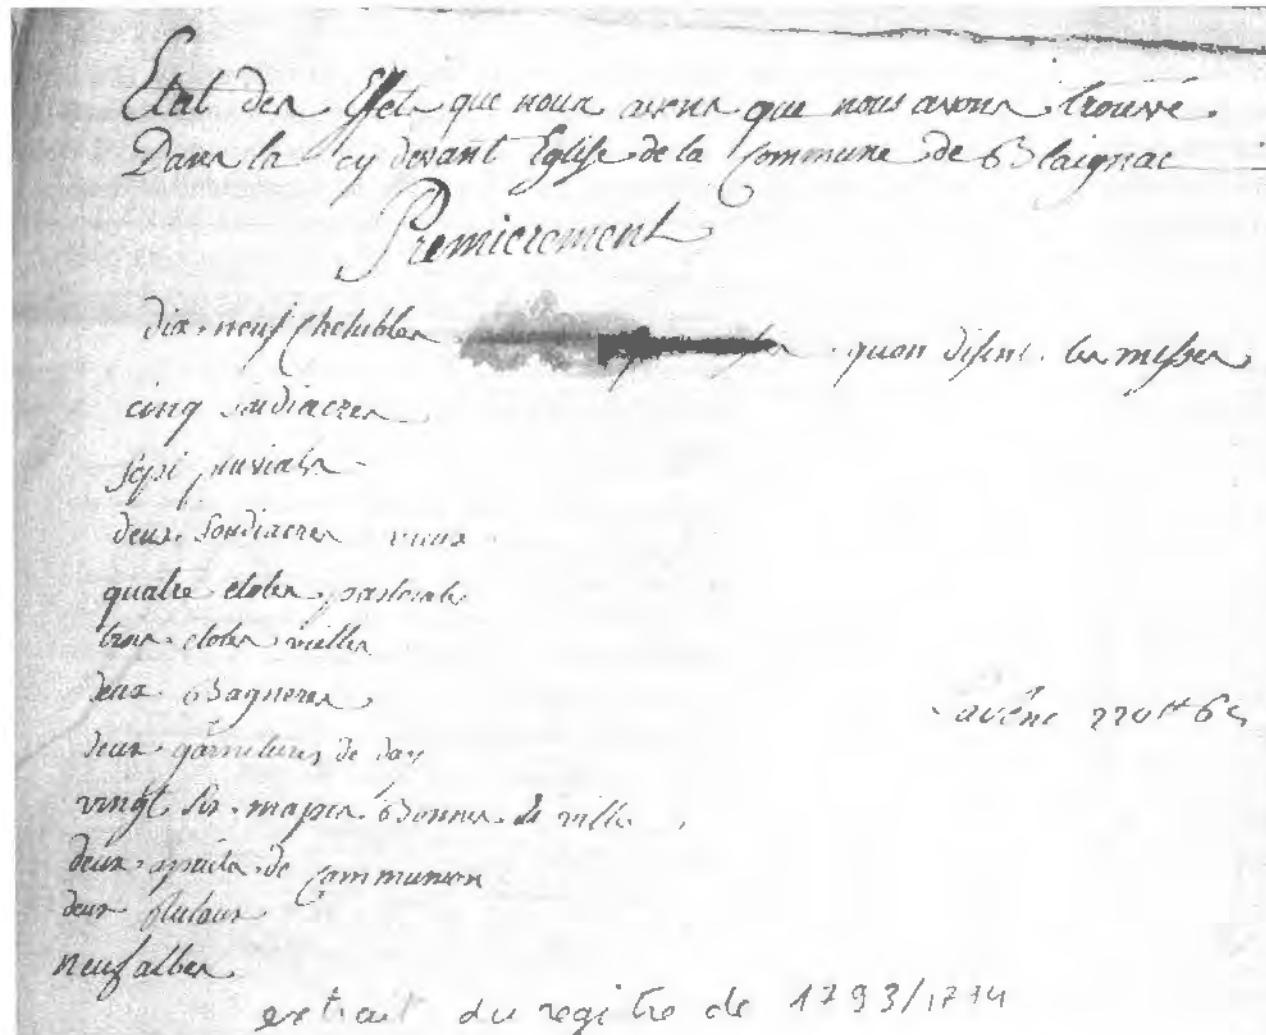 Etat des Effet que nous avens que nous avons trouvé.
Dans la cy devant Eglise de la Commune de Blaignac
Premierement
dix-neuf Chesubles quon disent les messes
cinq soudiacres
sept pluvials
deux Soudiacres vieux
quatre etoles pastorals
trois etoles vielles
deux Bagneres
deux garnitures de day
vingt six mapes Bonnes
deux de Communion
deux
neuf albes
extrait du registre de 1793/1794